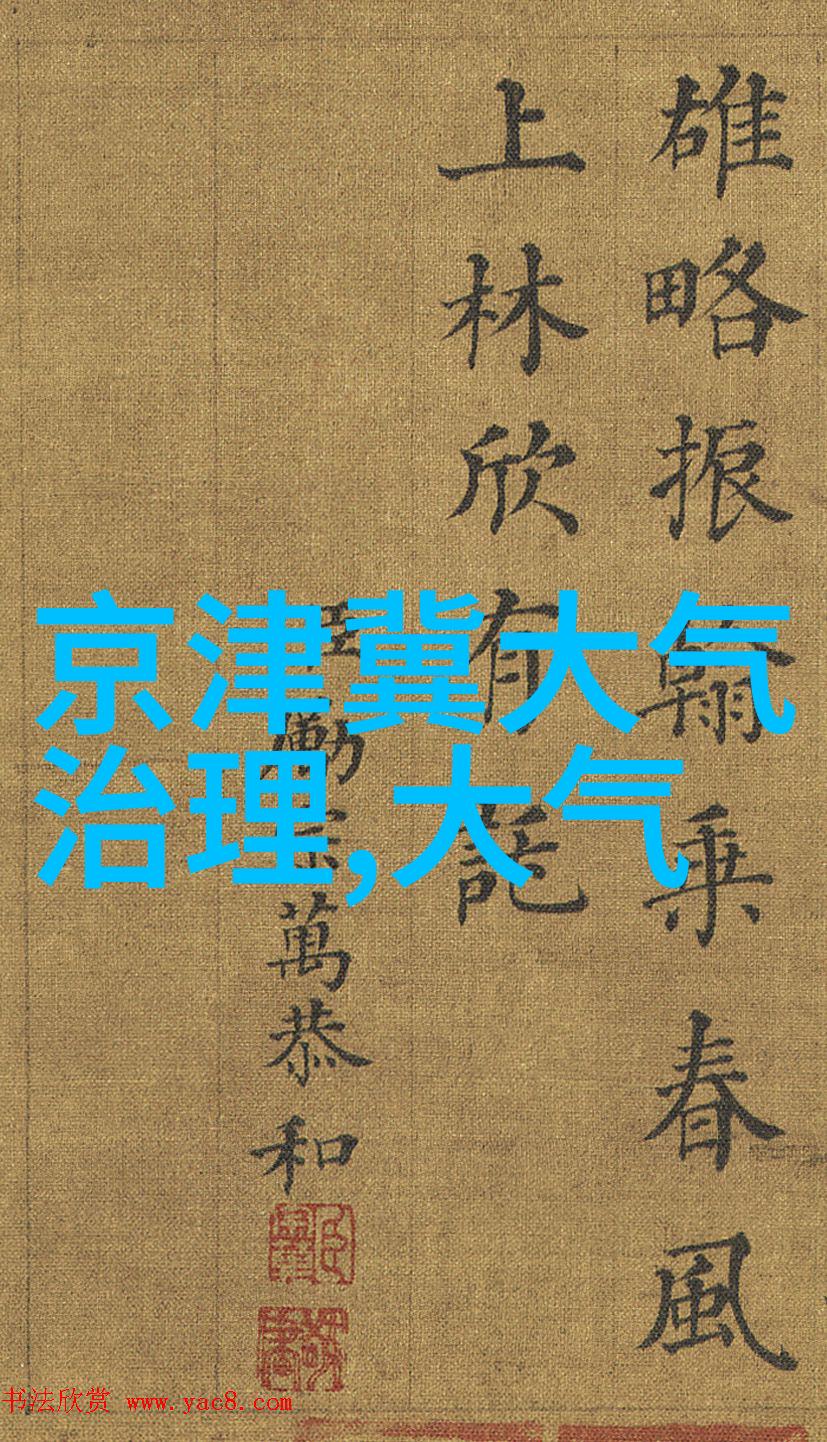 雄略振翰乘春風
上林欣有託
臣勵宗萬恭和
京津冀大气
治理,大气
书法欣赏 www.yac8.com